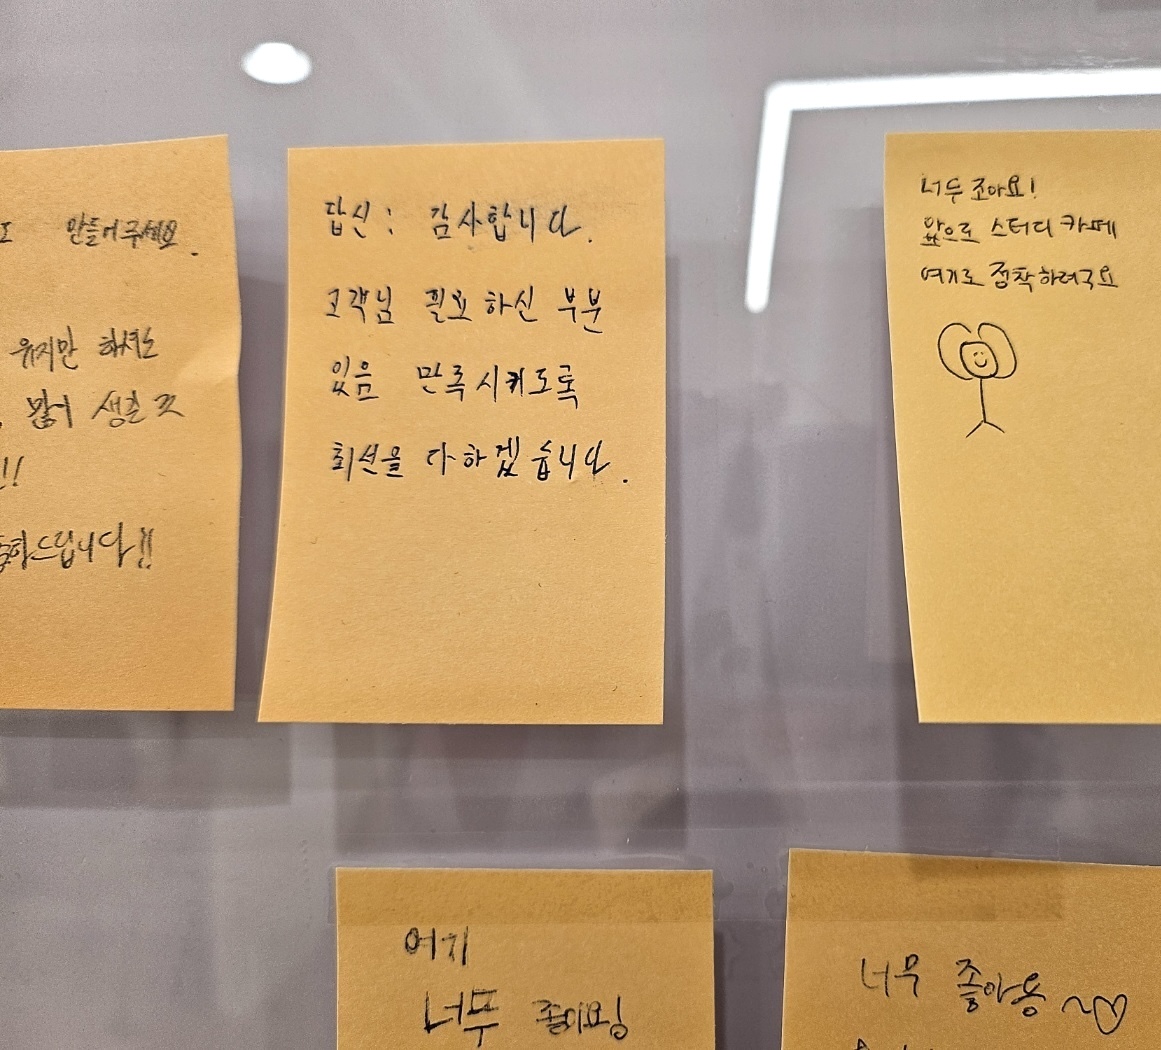 만들어주세요.
유지만 하셔도
많이 생길 것
!!
드립니다!!
답신: 감사합니다.
고객님 필요하신 부분
있음 만족시키도록
최선을 다하겠습니다.
너무 조아요!
앞으로 스터디 카페
여기로 정착하려구요
여기
너무 좋아요잉
너무 좋아용~♡